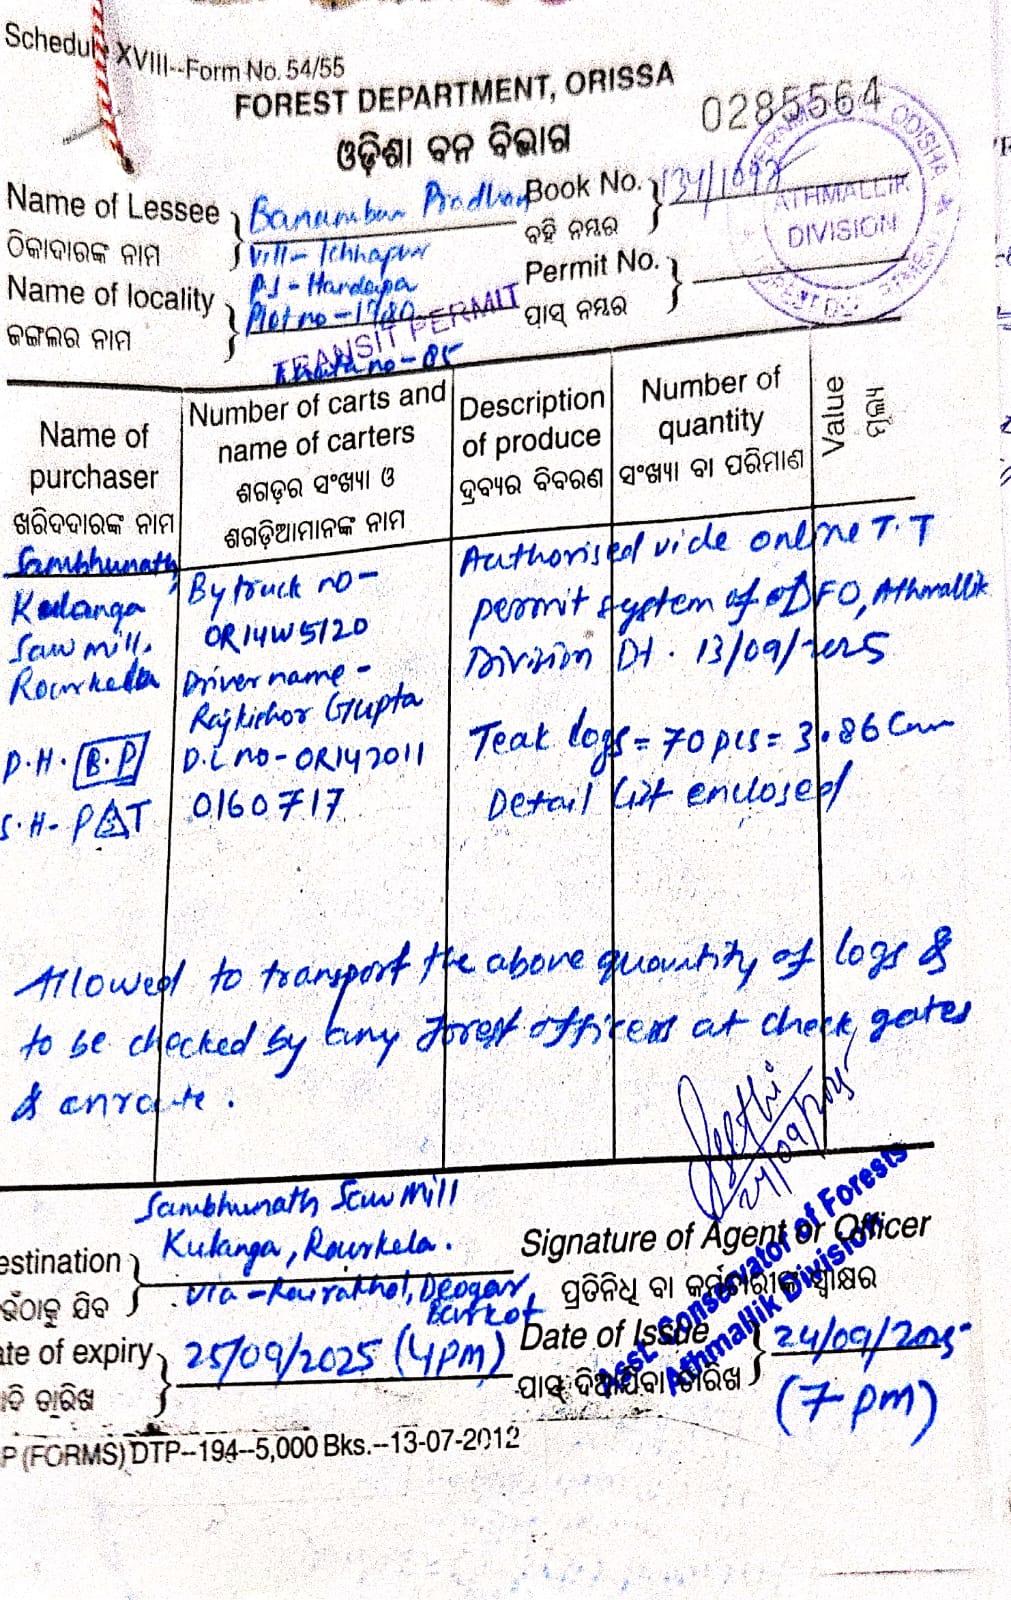 Schedule XVIII--Form No. 54/55
FOREST DEPARTMENT, ORISSA
0285564
ଓଡ଼ିଶା ବନ ବିଭାଗ
Name of Lessee } Banambar Pradhan
ଠିକାଦାରଙ୍କ ନାମ
Vill- Ichhapur
Book No. } 134/1092
ବହି ନମ୍ବର
Name of locality } PS - Handapa
ଜଙ୍ଗଲର ନାମ
Plot no - 1980
Khata no - 85
Permit No. }
ପାସ୍ ନମ୍ବର
TRANSIT PERMIT
ODISHA
ATHMALLIK
DIVISION
Name of purchaser
ଖରିଦଦାରଙ୍କ ନାମ
Number of carts and name of carters
ଶଗଡ଼ର ସଂଖ୍ୟା ଓ
ଶଗଡ଼ିଆମାନଙ୍କ ନାମ
Description of produce
ଦ୍ରବ୍ୟର ବିବରଣ
Number of quantity
ସଂଖ୍ୟା ବା ପରିମାଣ
Value
ମୂଲ୍ୟ
Sambhunath
Kulanga
Saw mill,
Rourkela
P.H. B.P
S.H- P T
By truck no -
OR14W5120
Driver name -
Rajkishor Gupta
D.L no - OR142011
0160717
Authorised vide online T.T
permit system of of DFO, Athmallik
Division Dt. 13/09/2025
Teak logs = 70 pcs = 3.86 Cum
Detail list enclosed
Allowed to transport the above quantity of logs &
to be checked by any forest officers at check gates
& enroute.
24/09/2025
Sambhunath Saw Mill
estination } Kulanga, Rourkela.
ଯିବ
Via - Rairakhol, Deogar,
Barkot
Signature of Agent or Officer
ପ୍ରତିନିଧି ବା କର୍ମଚାରୀଙ୍କ ସ୍ୱାକ୍ଷର
Asst. Conservator of Forests
Athmallik Division
ate of expiry } 25/09/2025 (4 PM)
ତାରିଖ
Date of Issue } 24/09/2025
ପାସ୍ ଦିଆଯିବା ତାରିଖ
(7 pm)
P (FORMS) DTP--194--5,000 Bks.--13-07-2012